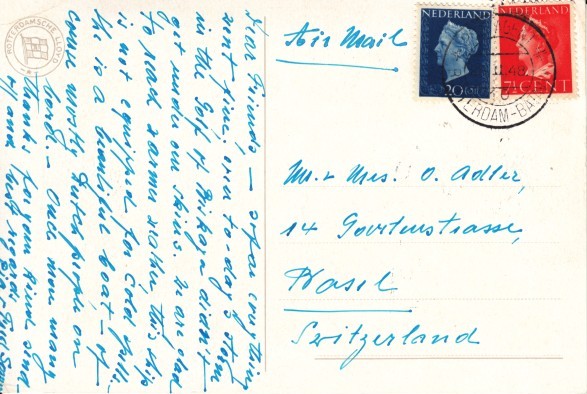 ROTTERDAMSCHE LLOYD
Dear Friends, – so far everything
went fine, even to-day's storm
in the Golf of Biskaya didn't
get under our skins. We are glad
to reach warmer, this ship
is not equipped for cold
It is a beautiful boat – of
course mostly Dutch people on
board. – Once more many
thanks for your kind
and best regards
Air Mail
NEDERLAND
20 CENT
NEDERLAND
7½ CENT
48
AMSTERDAM-BATAVIA
Mr. & Mrs. O. Adler,
14
Basel
Switzerland